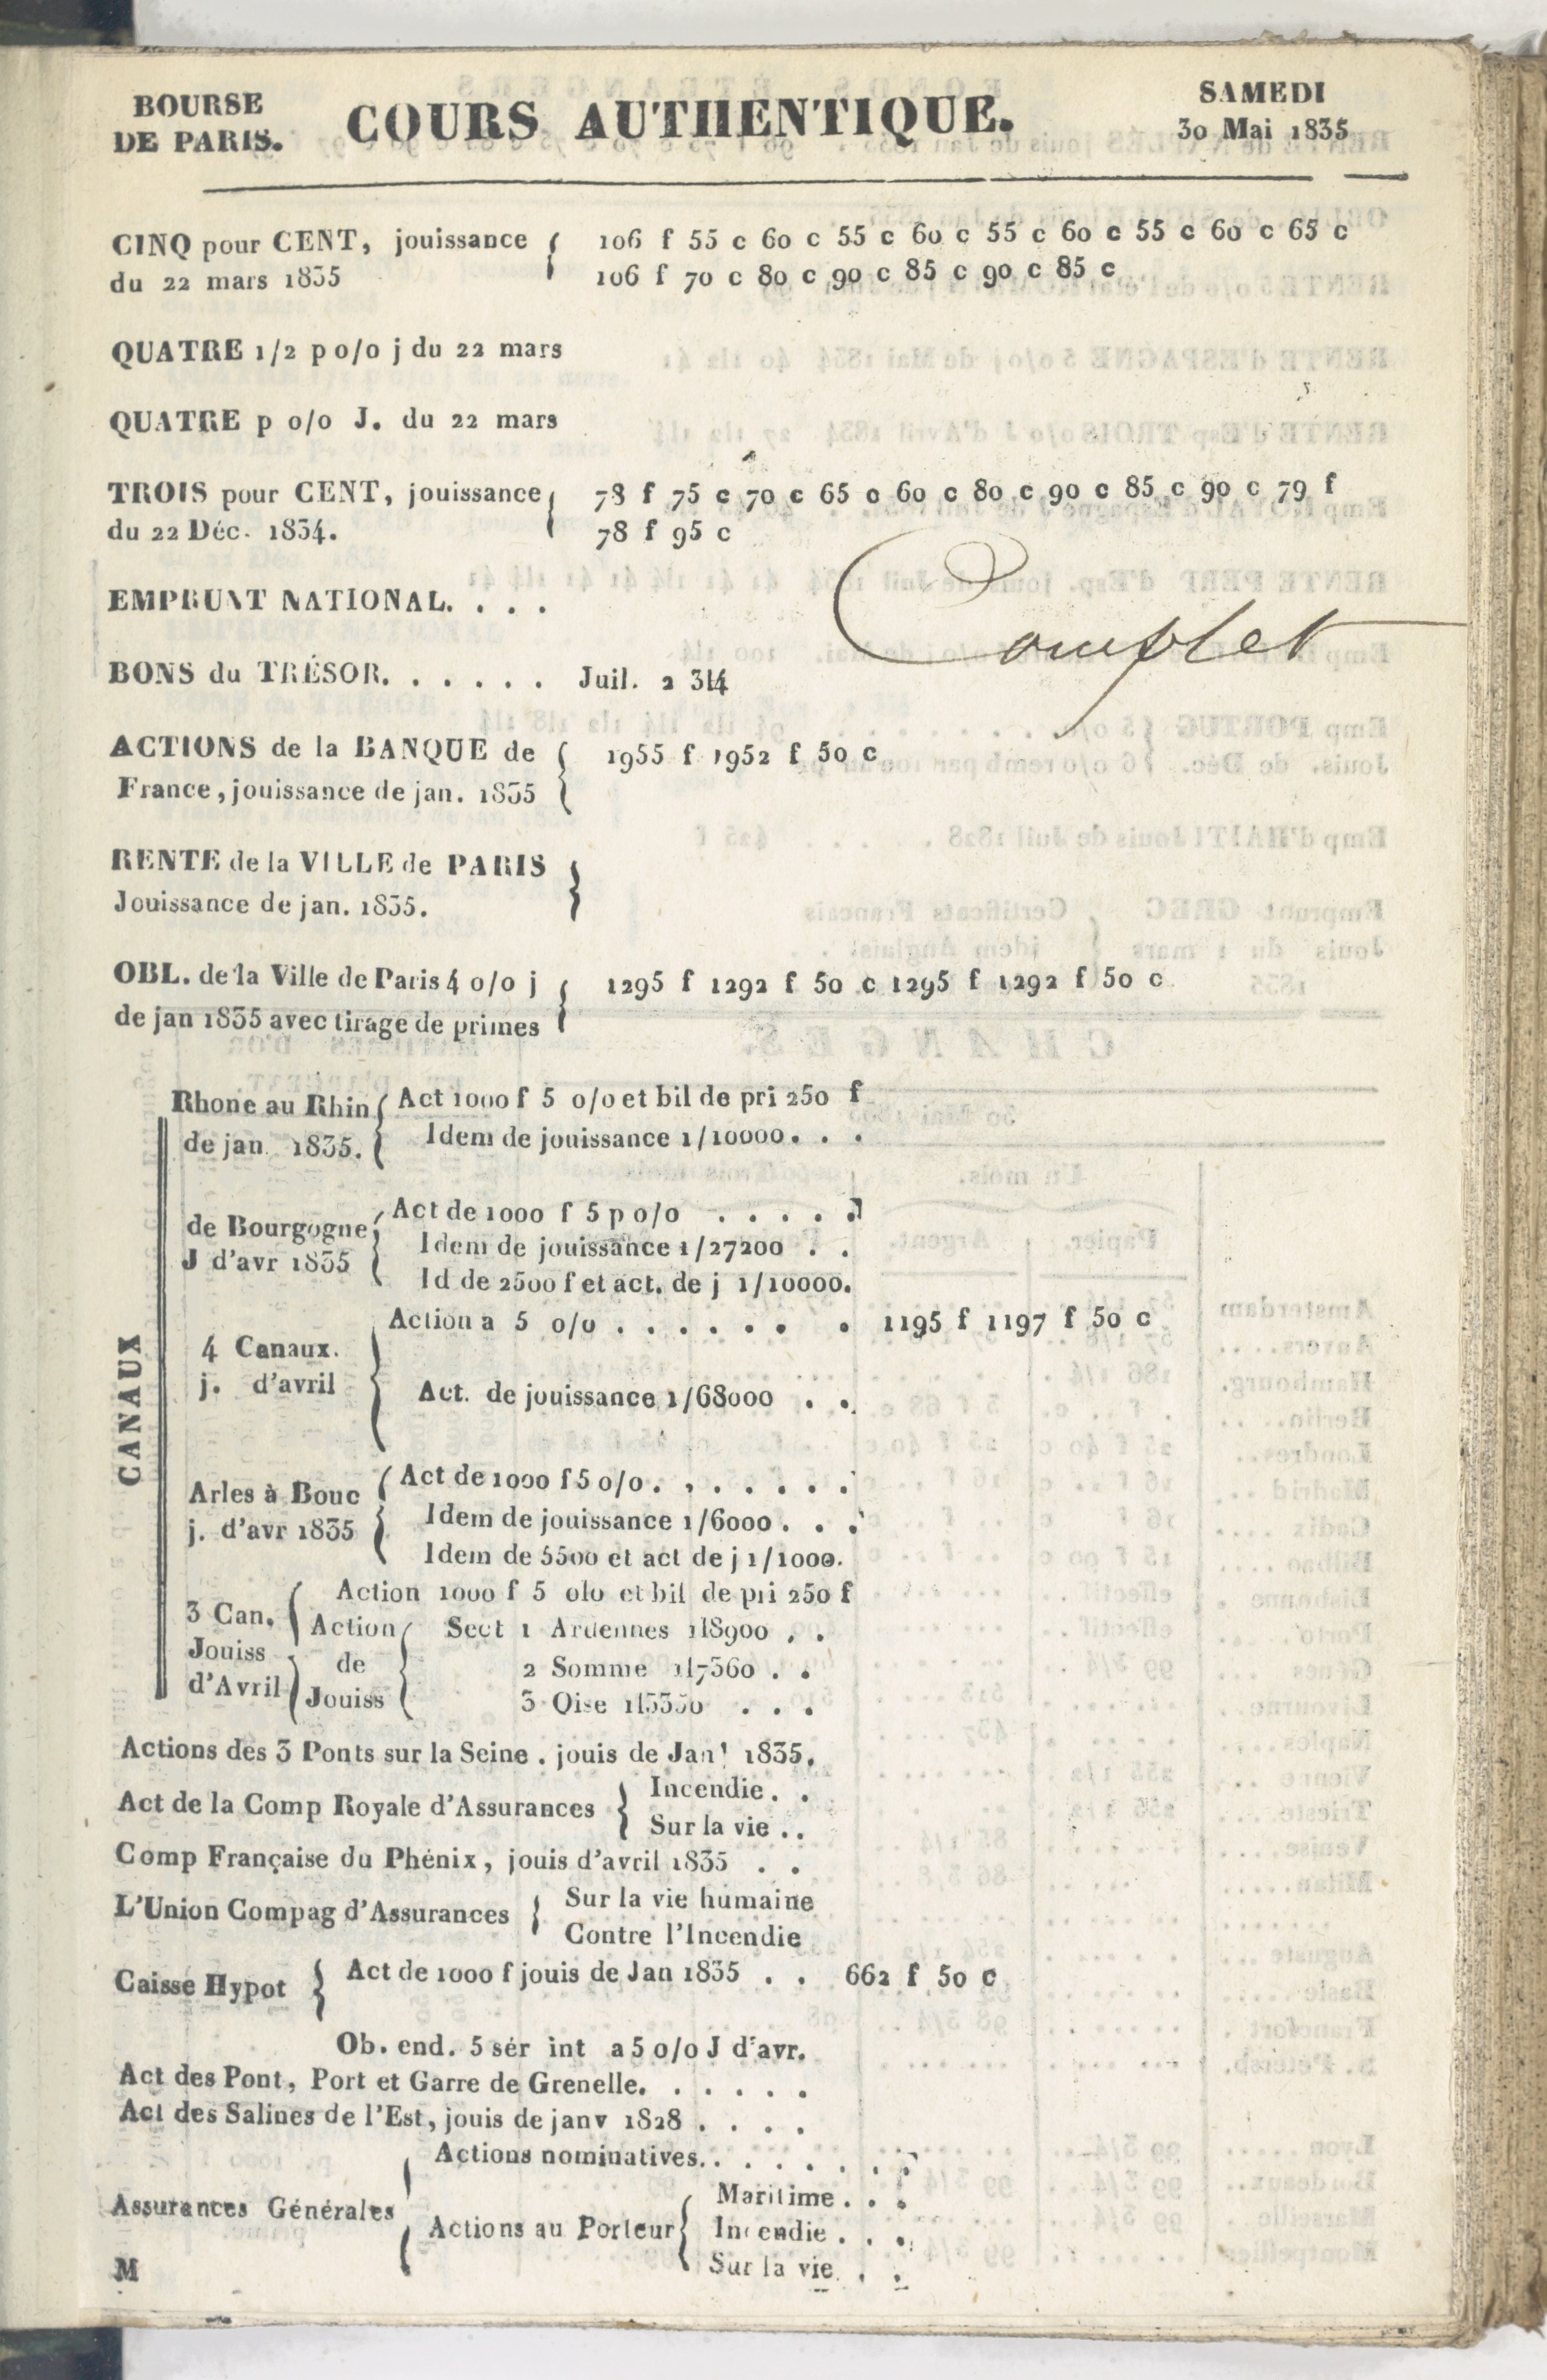 BOURSE
DE PARIS.
COURS AUTHENTIQUE.
SAMEDI
30 Mai 1835
CINQ pour CENT, jouissance { 106 f 55 c 60 c 55 c 60 c 55 c 60 c 55 c 60 c 65 c
du 22 mars 1835 106 f 70 c 80 c 90 c 85 c 90 c 85 c
QUATRE 1/2 p o/o j du 22 mars
QUATRE p o/o J. du 22 mars
TROIS pour CENT, jouissance { 78 f 75 c 70 c 65 c 60 c 80 c 90 c 85 c 90 c 79 f
du 22 Déc. 1834. 78 f 95 c
EMPRUNT NATIONAL. . . .
Complet
BONS du TRÉSOR. . . . . . . Juil. 2 3l4
ACTIONS de la BANQUE de { 1955 f 1952 f 50 c
France, jouissance de jan. 1835
RENTE de la VILLE de PARIS }
Jouissance de jan. 1835.
OBL. de la Ville de Paris 4 o/o j { 1295 f 1292 f 50 c 1295 f 1292 f 50 c
de jan 1835 avec tirage de primes
CANAUX
Rhone au Rhin { Act 1000 f 5 o/o et bil de pri 250 f
de jan 1835. Idem de jouissance 1/10000. . .
de Bourgogne { Act de 1000 f 5 p o/o . . . . .
J d'avr 1835 Idem de jouissance 1/27200 . .
Id de 2500 f et act. de j 1/10000.
4 Canaux. { Action a 5 o/o . . . . . . . 1195 f 1197 f 50 c
j. d'avril Act. de jouissance 1/68000 . .
Arles à Bouc { Act de 1000 f 5 o/o. . . . . . .
j. d'avr 1835 Idem de jouissance 1/6000 . . .
Idem de 5500 et act de j 1/1000.
3 Can. { Action 1000 f 5 olo et bil de pri 250 f
Jouiss Action { Sect 1 Ardennes 1l8900 . .
d'Avril de 2 Somme 1l7360 . .
Jouiss 3 Oise 1l3350 . . .
Actions des 3 Ponts sur la Seine . jouis de Jan! 1835.
Act de la Comp Royale d'Assurances { Incendie . .
Sur la vie . .
Comp Française du Phénix, jouis d'avril 1835 . .
L'Union Compag d'Assurances { Sur la vie humaine
Contre l'Incendie
Caisse Hypot { Act de 1000 f jouis de Jan 1835 . . 662 f 50 c
Ob. end. 5 sér int a 5 o/o J d'avr.
Act des Pont, Port et Garre de Grenelle. . . . . .
Act des Salines de l'Est, jouis de janv 1828 . . . .
Assurances Générales { Actions nominatives. . . . . . . .
Actions au Porteur { Maritime . . .
Incendie . . .
Sur la vie . .
M